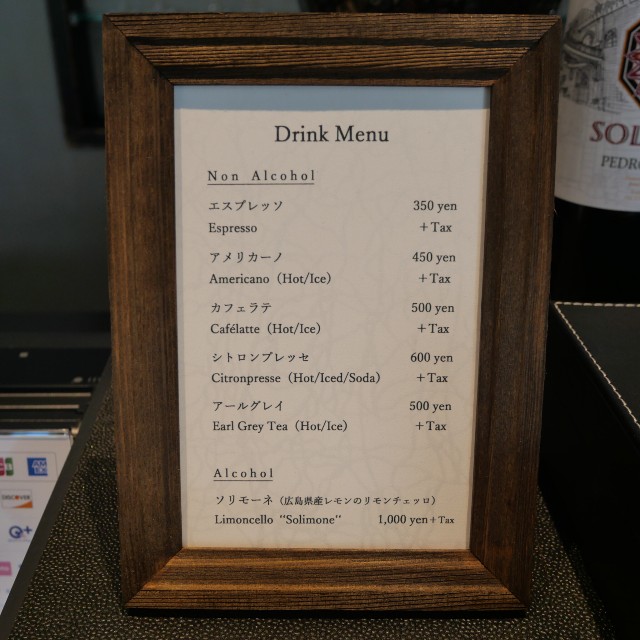 Drink Menu
Non Alcohol
エスプレッソ 350 yen
Espresso +Tax
アメリカーノ 450 yen
Americano (Hot/Ice) +Tax
カフェラテ 500 yen
Cafélatte (Hot/Ice) +Tax
シトロンプレッセ 600 yen
Citronpresse (Hot/Iced/Soda) +Tax
アールグレイ 500 yen
Earl Grey Tea (Hot/Ice) +Tax
Alcohol
ソリモーネ（広島県産レモンのリモンチェッロ）
Limoncello “Solimone“ 1,000 yen+Tax
DISCOVER